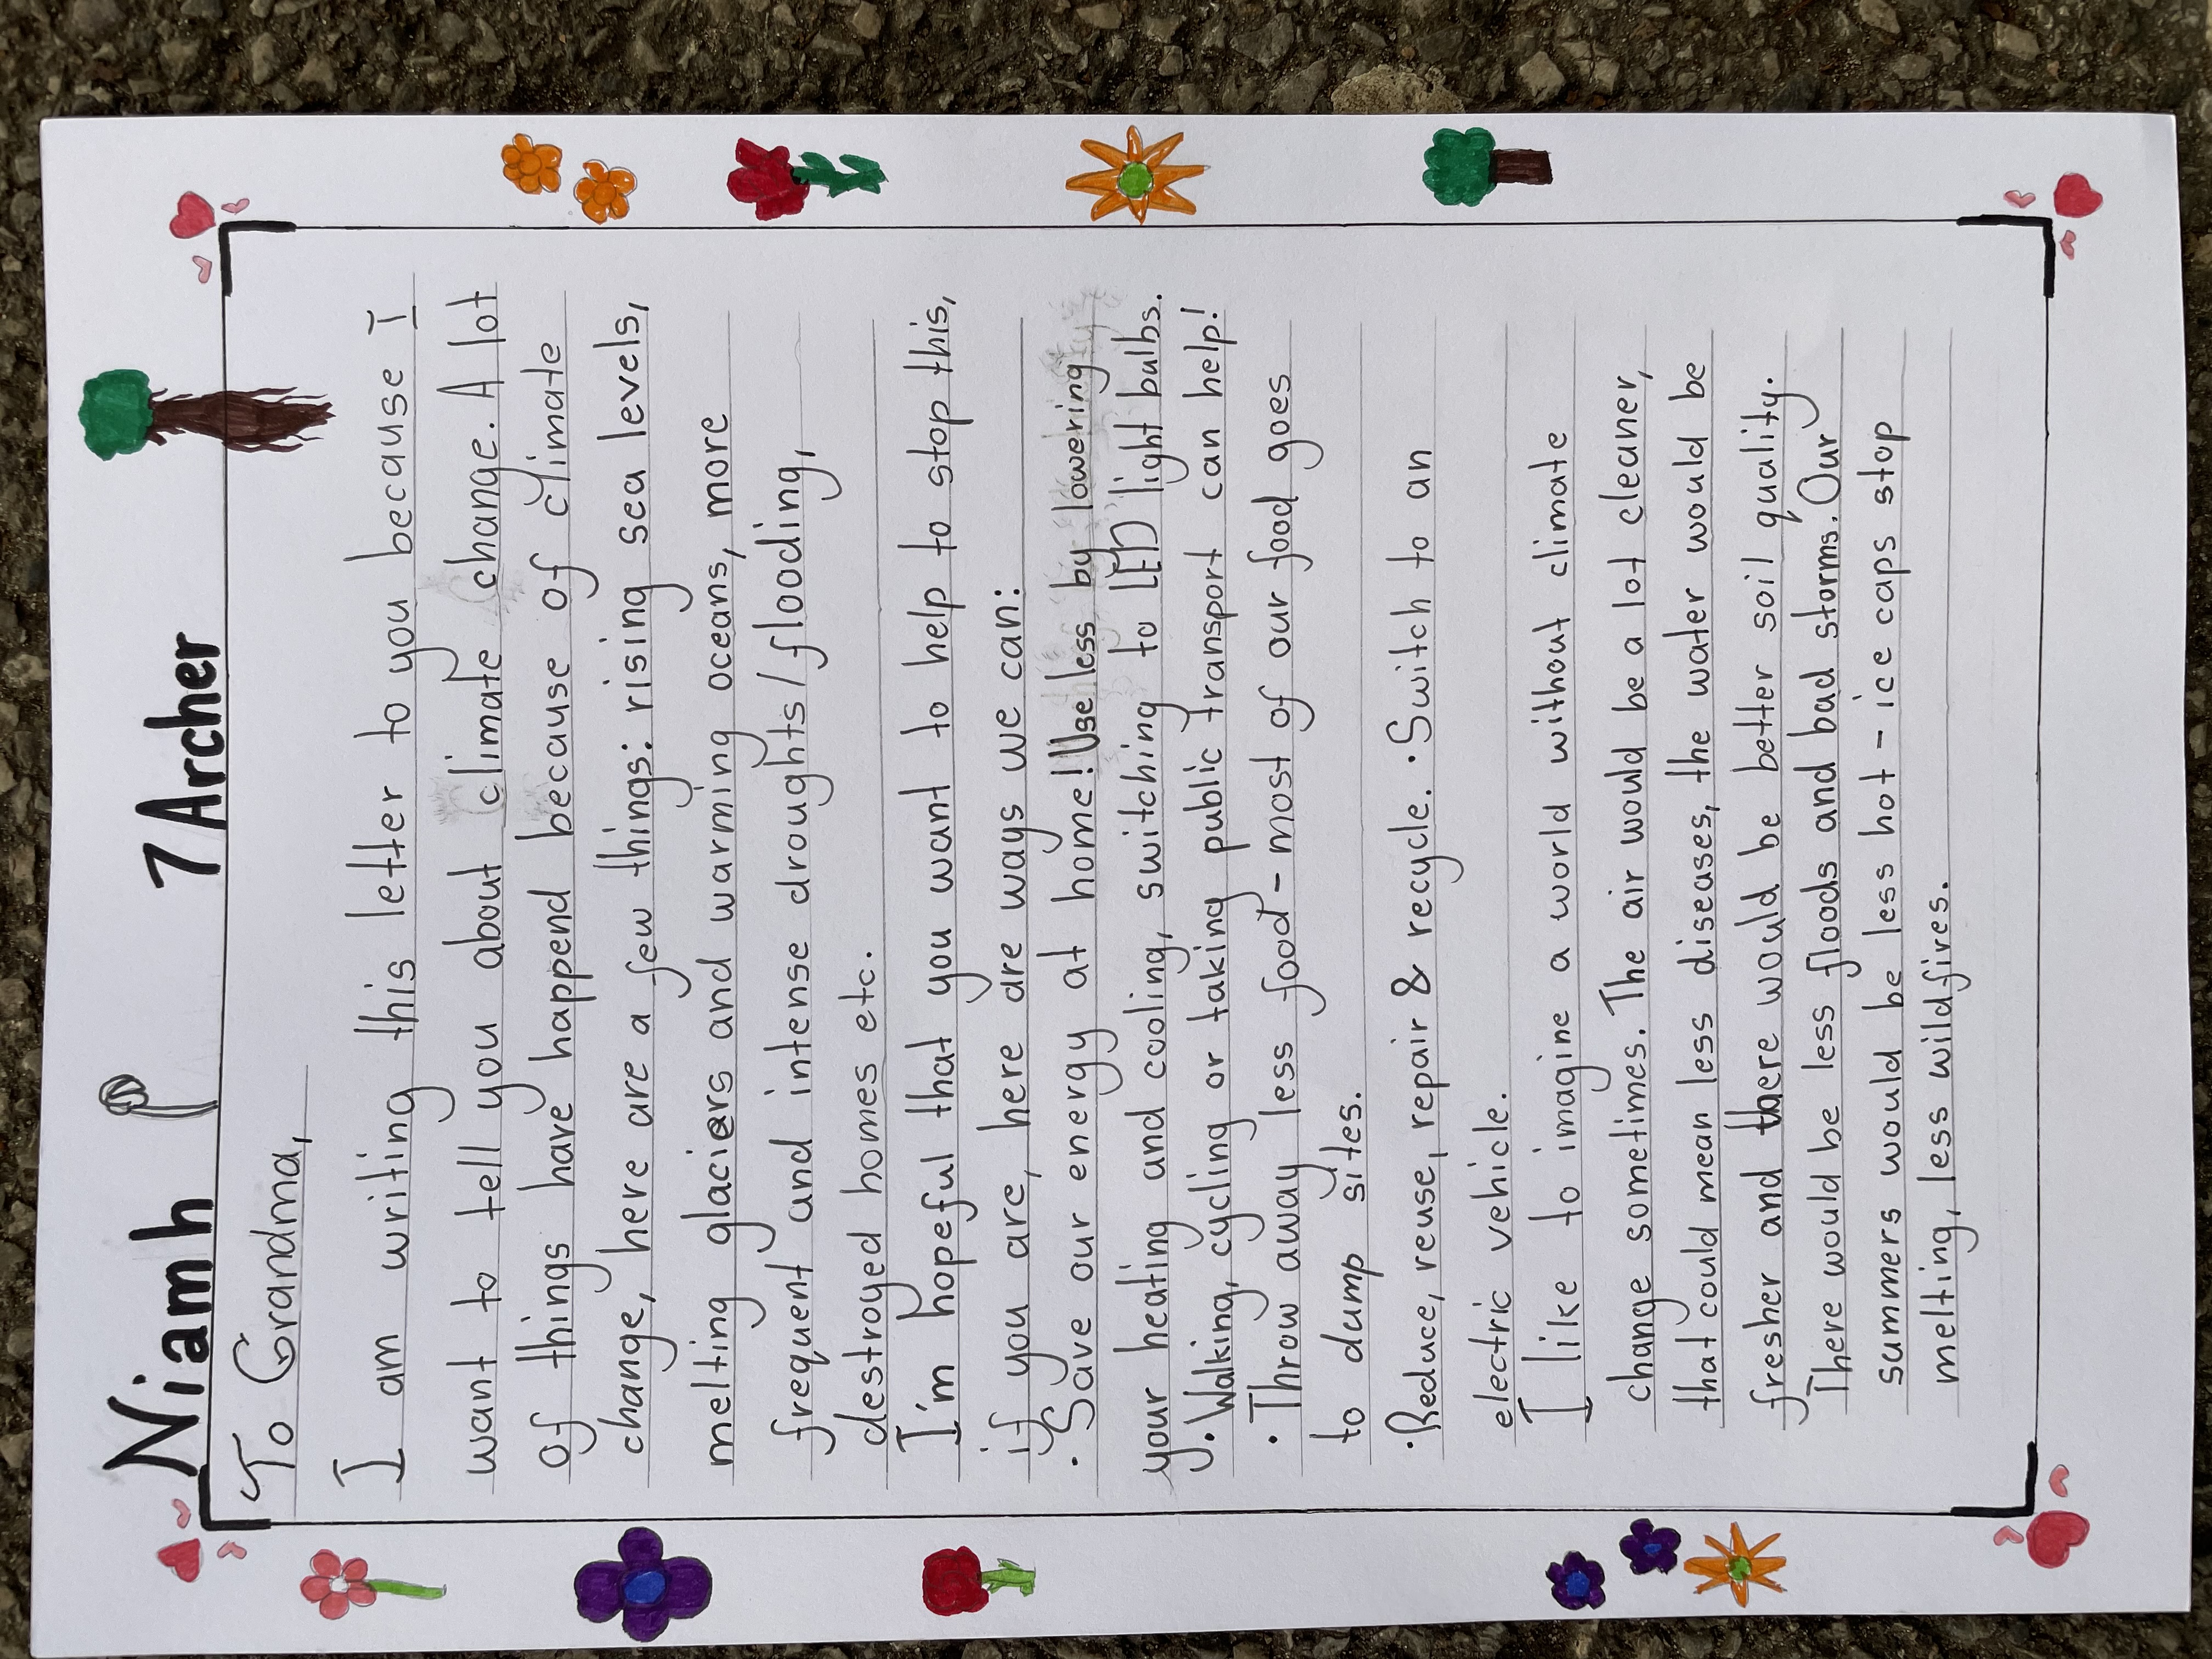 Niamh 7 Archer
To Grandma,
I am writing this letter to you because I
want to tell you about climate change. A lot
of things have happend because of climate
change, here are a few things: rising sea levels,
melting glaciers and warming oceans, more
frequent and intense droughts/flooding,
destroyed homes etc.
I'm hopeful that you want to help to stop this,
if you are, here are ways we can:
· Save our energy at home! Use less by lowering
your heating and cooling, switching to LED light bulbs.
· Walking, cycling or taking public transport can help!
· Throw away less food - most of our food goes
to dump sites.
· Reduce, reuse, repair & recycle. · Switch to an
electric vehicle.
I like to imagine a world without climate
change sometimes. The air would be a lot cleaner,
that could mean less diseases, the water would be
fresher and there would be better soil quality.
There would be less floods and bad storms. Our
summers would be less hot - ice caps stop
melting, less wildfires.